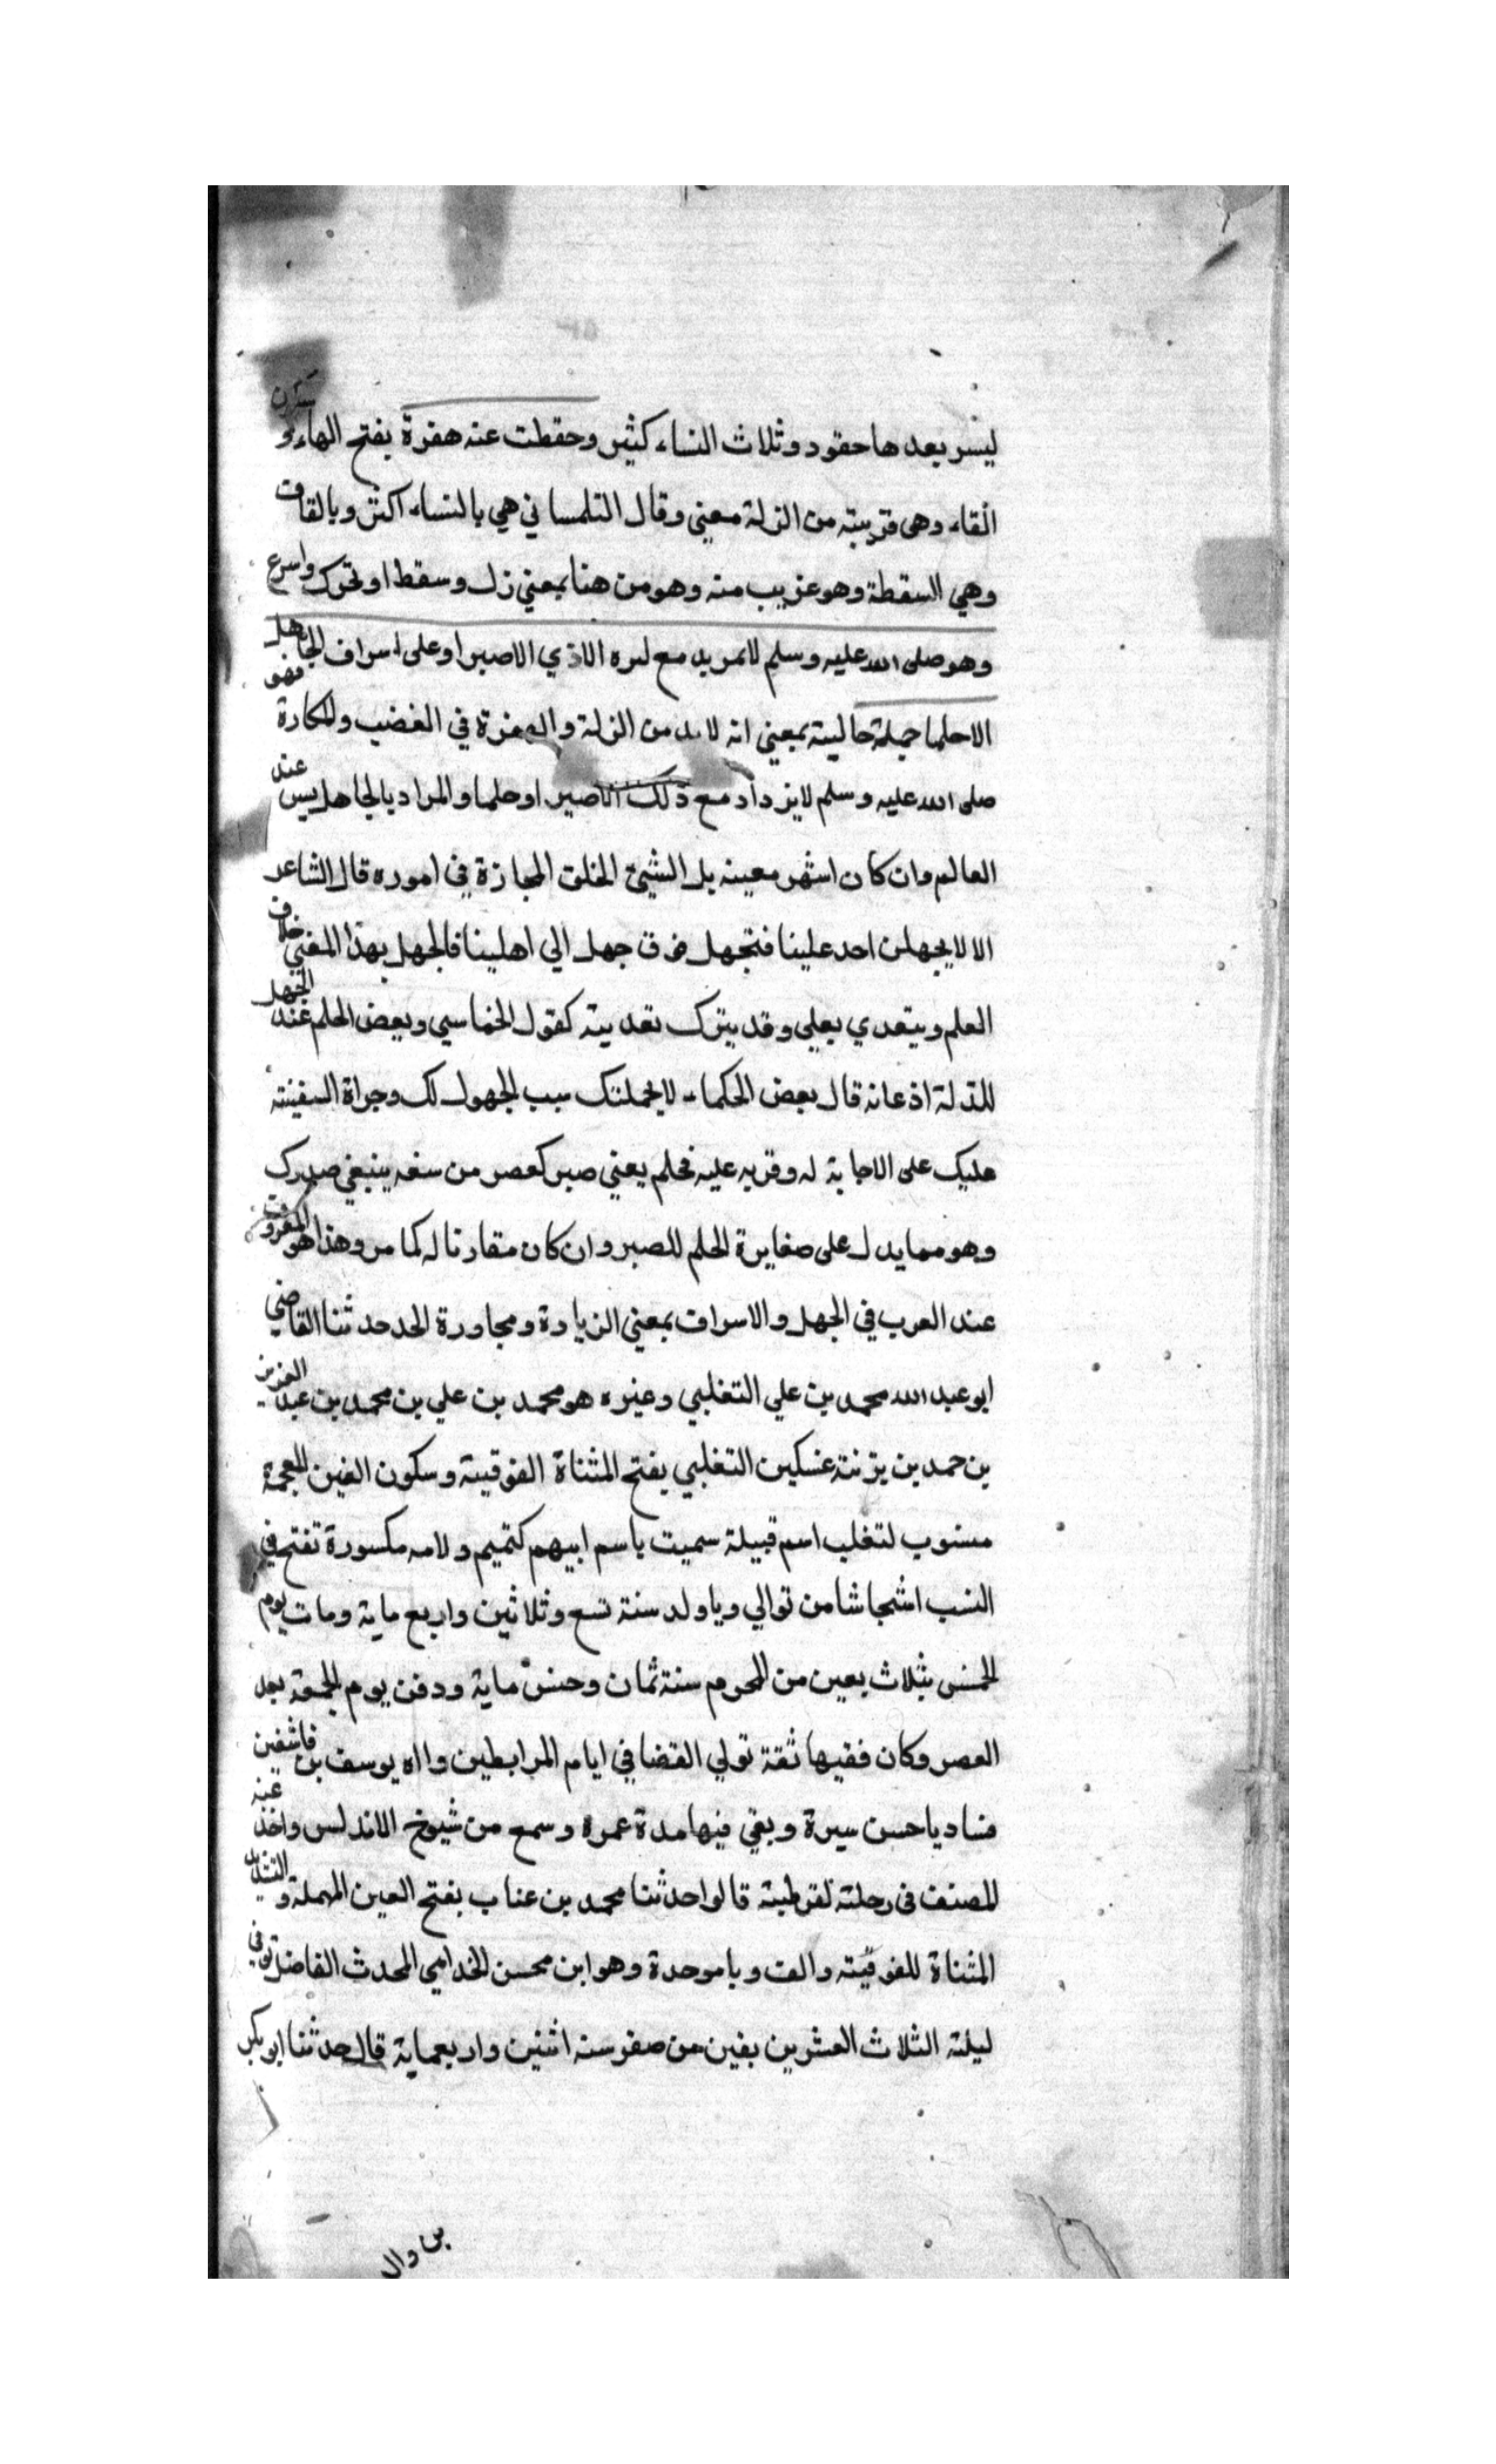 ليسر بعدها حقود وثلاث النساء كثير وحفظت عنه هفرة بفتح الهاء و سكون
الفاء وهى قريبة من الزلة معنى وقال التلمساني هي بالنساء اكثر وبالقاف
وهي السقطة وهو غريب منه وهو من هنا بمعني زل وسقط او تحرك واسرع
وهو صلى الله عليه وسلم لا يزيد مع الاذي الا صبرا وعلى اسراف الجاهل
الا حلما جملة حالية بمعني انه لابد من الزلة والهفرة في الغضب والمكارة فهو
صلى الله عليه وسلم لا يزداد مع ذلك الا صبرا وحلما والمراد بالجاهل ليس عند
العالم وان كان اشهر معينه بل الشيئ الخلق المجازة في اموره قال الشاعر
الا لا يجهلن احد علينا فنجهل فوق جهل الي اهلينا فالجهل بهذا المعني خلاف
العلم ويتعدي بعلي وقد يترك تعديته كقول الخماسي وبعض الحلم عند الجهل
للذلة اذعانه قال بعض الحكماء لا يحملنك سبب الجهول لك وجراة السفيته
عليك على الاجابة له وقربه عليه فحلم يعني صبر كعصر من سفه ينبغي صدرك
وهو مما يدل على مغايرة الحلم للصبر وان كان مقارنا له كما مر وهذا هو المعروف
عند العرب في الجهل والاسراف بمعني الزيادة ومجاورة الحد حدثنا القاضي
ابو عبد الله محمد بن علي التغلبي وغيره هو محمد بن علي بن محمد بن عبد العزيز
بن حمد بن التغلبي بفتح المثناة الفوقية وسكون الغين المعجمة
منسوب لتغلب اسم قبيلة سميت باسم ابيهم كتميم ولامه مكسورة تفتح في
النسب من توالي ويا ولد سنة تسع وثلاثين واربع ماية ومات يوم
الخمس بثلاث بعين من المحرم سنة ثمان وخمس ماية ودفن يوم الجمعة بعد
العصر وكان فقيها ثقة تولي القضا في ايام المرابطين يوسف بن تاشفين
فساد يا حسن سيرة وبقي فيها مدة عمره وسمع من شيوخ الاندلس واخذ عنه
المصنف فى رحلته لقرطبة قالوا حدثنا محمد بن عتاب بفتح العين المهملة والتشديد
المثناة الفوقيته والف وبا موحدة وهو ابن محسن الخدامي المحدث الفاضل توفى
ليلته الثلاث العشرين بفين من صفر سنه اثنين واربعماية قال حدثنا ابو بكر
بن وال